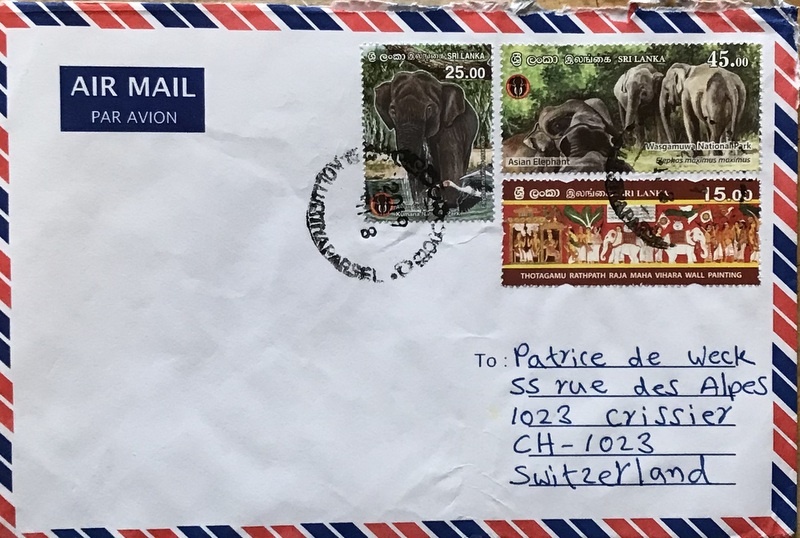 AIR MAIL
PAR AVION
ශ්‍රී ලංකා இலங்கை SRI LANKA
25.00
ශ්‍රී ලංකා இலங்கை SRI LANKA
45.00
Wasgamuwa National Park
Asian Elephant
Elephas maximus maximus
ශ්‍රී ලංකා இலங்கை SRI LANKA
15.00
THOTAGAMU RATHPATH RAJA MAHA VIHARA WALL PAINTING
To: Patrice de Weck
55 rue des Alpes
1023 Crissier
CH-1023
Switzerland